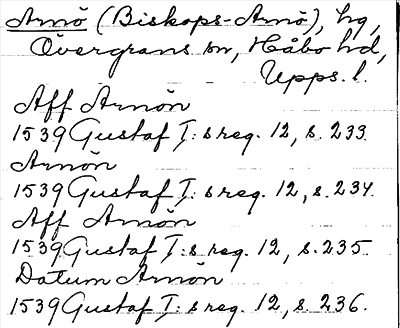 Arnö (Biskops-Arnö), hg,
Övergrans sn, Håbo hd,
Upps. l.
Aff Arnön
1539 Gustaf I:s reg. 12, s. 233.
Arnön
1539 Gustaf I:s reg. 12, s. 234.
Aff Arnön
1539 Gustaf I:s reg. 12, s. 235.
Datum Arnön
1539 Gustaf I:s reg. 12, s. 236.